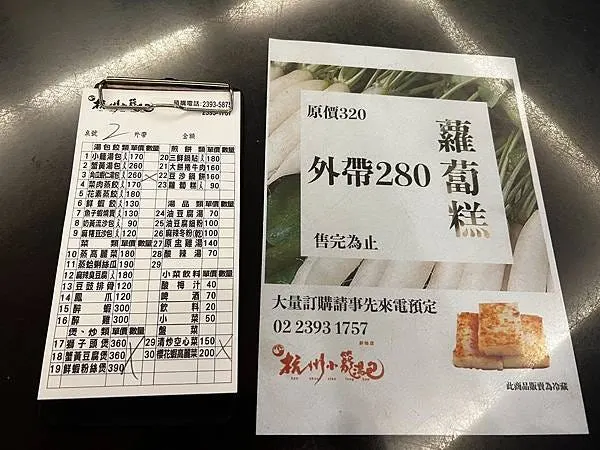 杭州小籠湯包
預購電話:2393-5875
2393-1757
桌號 2 外帶 金額
湯包餃類 單價 數量
1 小籠湯包 170
2 蟹黃湯包 260
3 260
4 菜肉蒸餃 170
5 花素蒸餃 180
6 鮮蝦餃 130
7 魚子蝦燒賣 130
8 奶黃流沙包 90
9 麻糬豆沙包 120
菜類 單價 數量
10 蒸高麗菜 180
11 蒸蛤蜊絲瓜 190
12 麻辣臭豆腐 180
13 豆豉排骨 120
14 鳳爪 120
15 醉蝦 300
16 醉雞 300
煲、炒類 單價 數量
17 獅子頭煲 360
18 蟹黃豆腐煲 360
19 鮮蝦粉絲煲 390
煎餅類 單價 數量
20 三鮮鍋貼 180
21 大餅捲牛肉 160
22 豆沙鍋餅 160
23 蘿蔔糕 90
湯品類 單價 數量
24 油豆腐湯 70
25 油豆腐細粉 100
26 麻辣冬粉(乾) 100
27 原盅雞湯 140
28 酸辣湯 70
29
小菜飲料 單價 數量
酸梅汁 40
啤酒 70
飲料 20
小菜 50
盤菜
29 清炒空心菜 150
30 櫻花蝦高麗菜 200
原價320
外帶280
售完為止
蘿蔔糕
大量訂購請事先來電預定
02 2393 1757
杭州小籠湯包
hang zhou xiao long bao
此商品販賣為冷藏